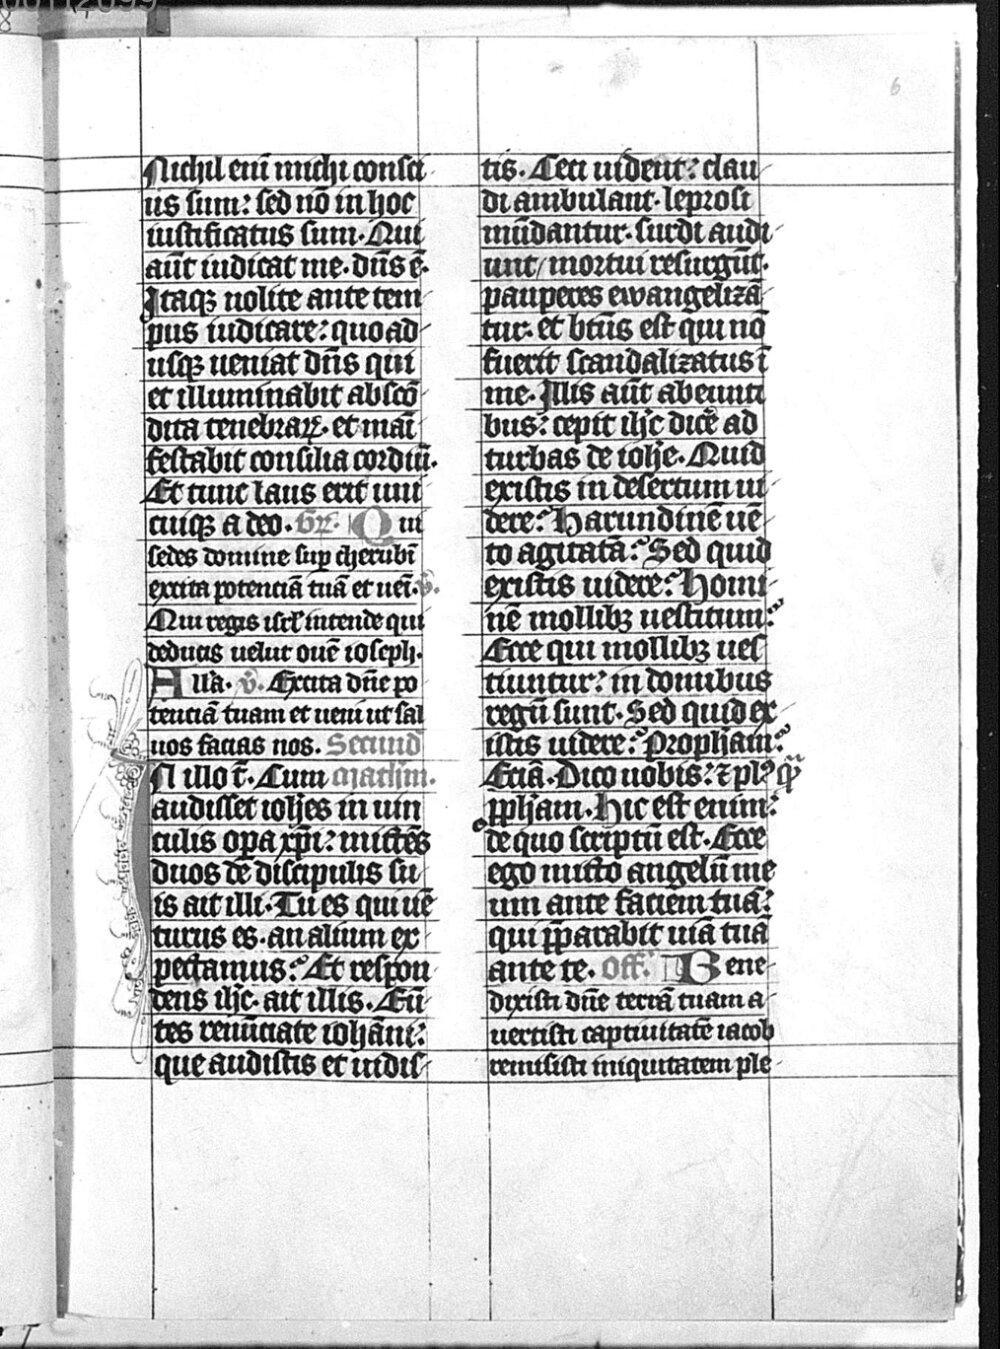 6
Nichil eni̅ michi consci
us sum: sed no̅ in hoc
iustificatus sum. Qui
aut̅ iudicat me. dn̅s e̅.
Itaqꝫ nolite ante tem
pus iudicare: quo ad
usqꝫ ueniat dn̅s qui
et illuminabit absco̅
dita tenebraꝝ. et mai̅
festabit consilia cordiu̅.
Et tunc laus erit uni
cuiqꝫ a deo. Gr̅. Qui
sedes domine suꝑ cherubi̅
excita potencia̅ tua̅ et uei̅. v̅.
Qui regis isrl̅ intende qui
deducis uelut oue̅ ioseph.
Alla̅. v̅. Excita dn̅e po
tencia̅ tuam et ueni ut sal
uos facias nos. Secund̅
N illo t̅. Cum mathm̅.
audisset ioh̅es in uin
culis oꝑa xp̅i: mitte̅s
duos de discipulis su
is ait illi. Tu es qui ue̅
turus es. an alium ex
pectamus: Et respon
dens ih̅c. ait illis. Eu̅
tes renu̅ciate ioha̅ni:
que audistis et uidis
tis. Ceci uident: clau
di ambulant. leprosi
mu̅dantur. surdi audi
unt / mortui resurgu̅t.
pauperes ewangeliza̅
tur. et bt̅us est qui no̅
fuerit scandalizatus i̅
me. Illis aut̅ abeunti
bus: cepit ih̅c dice̅ ad
turbas de ioh̅e. Quid
existis in desertum ui
dere: Harundine̅ ue̅
to agitata̅: Sed quid
existis uidere: Homi
ne̅ mollibꝫ uestitum:
Ecce qui mollibꝫ ues
tiuntur: in domibus
regu̅ sunt. Sed quid ex
istis uidere: Propham̅:
Etia̅. Dico uobis: ⁊ plꝰ qm̅
ꝓph̅am. Hic est enim:
de quo scriptu̅ est. Ecce
ego mitto angelu̅ me
um ante faciem tua̅:
qui p̅parabit uia̅ tua̅
ante te. Off̅. Bene
dixisti dn̅e terra̅ tuam a
uertisti captiuitate̅ iacob
remisisti iniquitatem ple